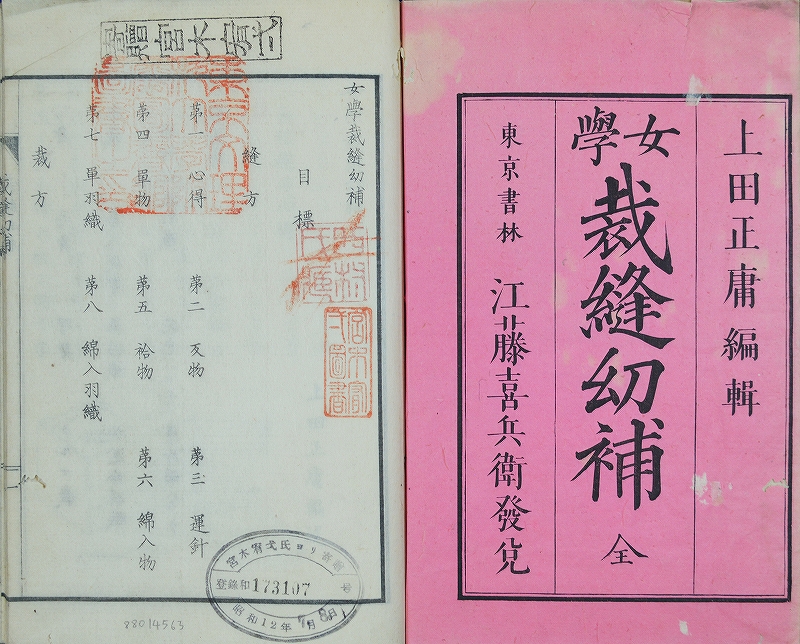 上田正庸編輯
女學
裁縫幼補 全
東京書林 江藤喜兵衛發兌
女學裁縫幼補
目標
縫方
第一 心得 第二 叐物 第三 運針
第四 單物 第五 袷物 第六 綿入物
第七 單羽織 第八 綿入羽織
裁方
裁縫幼補
登錄和173107号
昭和12年7月8日
88014563